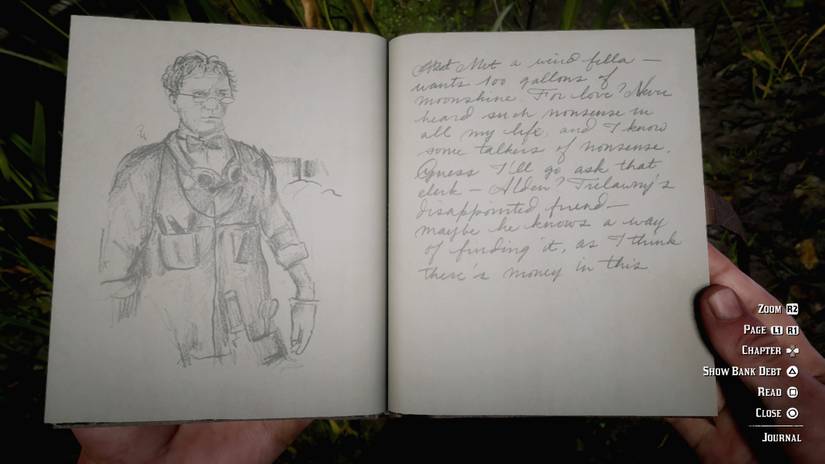 Met a weird fella —
wants 100 gallons of
moonshine. For love? Never
heard such nonsense in
all my life, and I know
some talkers of nonsense.
Guess I'll go ask that
clerk — Alden? Trelawny's
disappointed friend —
maybe he knows a way
of finding it, as I think
there's money in this
ZOOM R2
PAGE L1 R1
CHAPTER
SHOW BANK DEBT
READ
CLOSE
JOURNAL